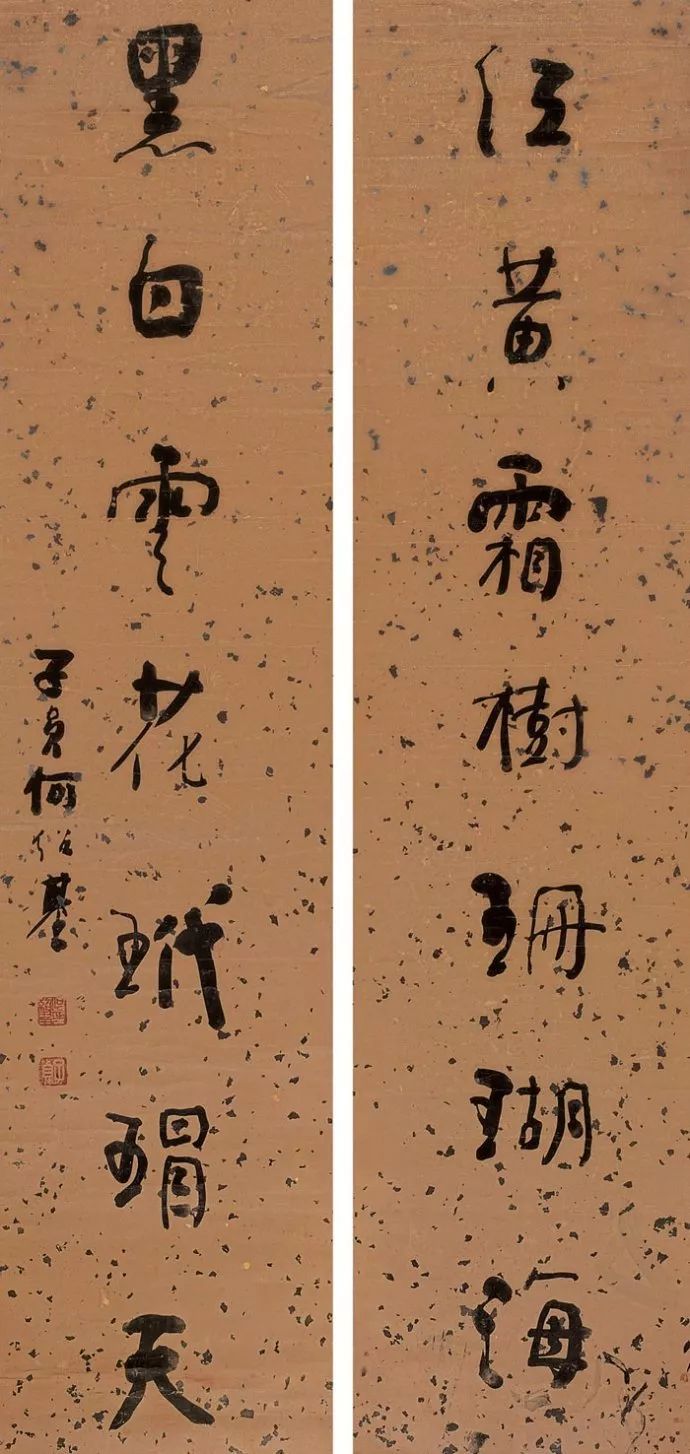 红黄霜樹珊瑚海
黑白雲花玳瑁天
子貞何紹基